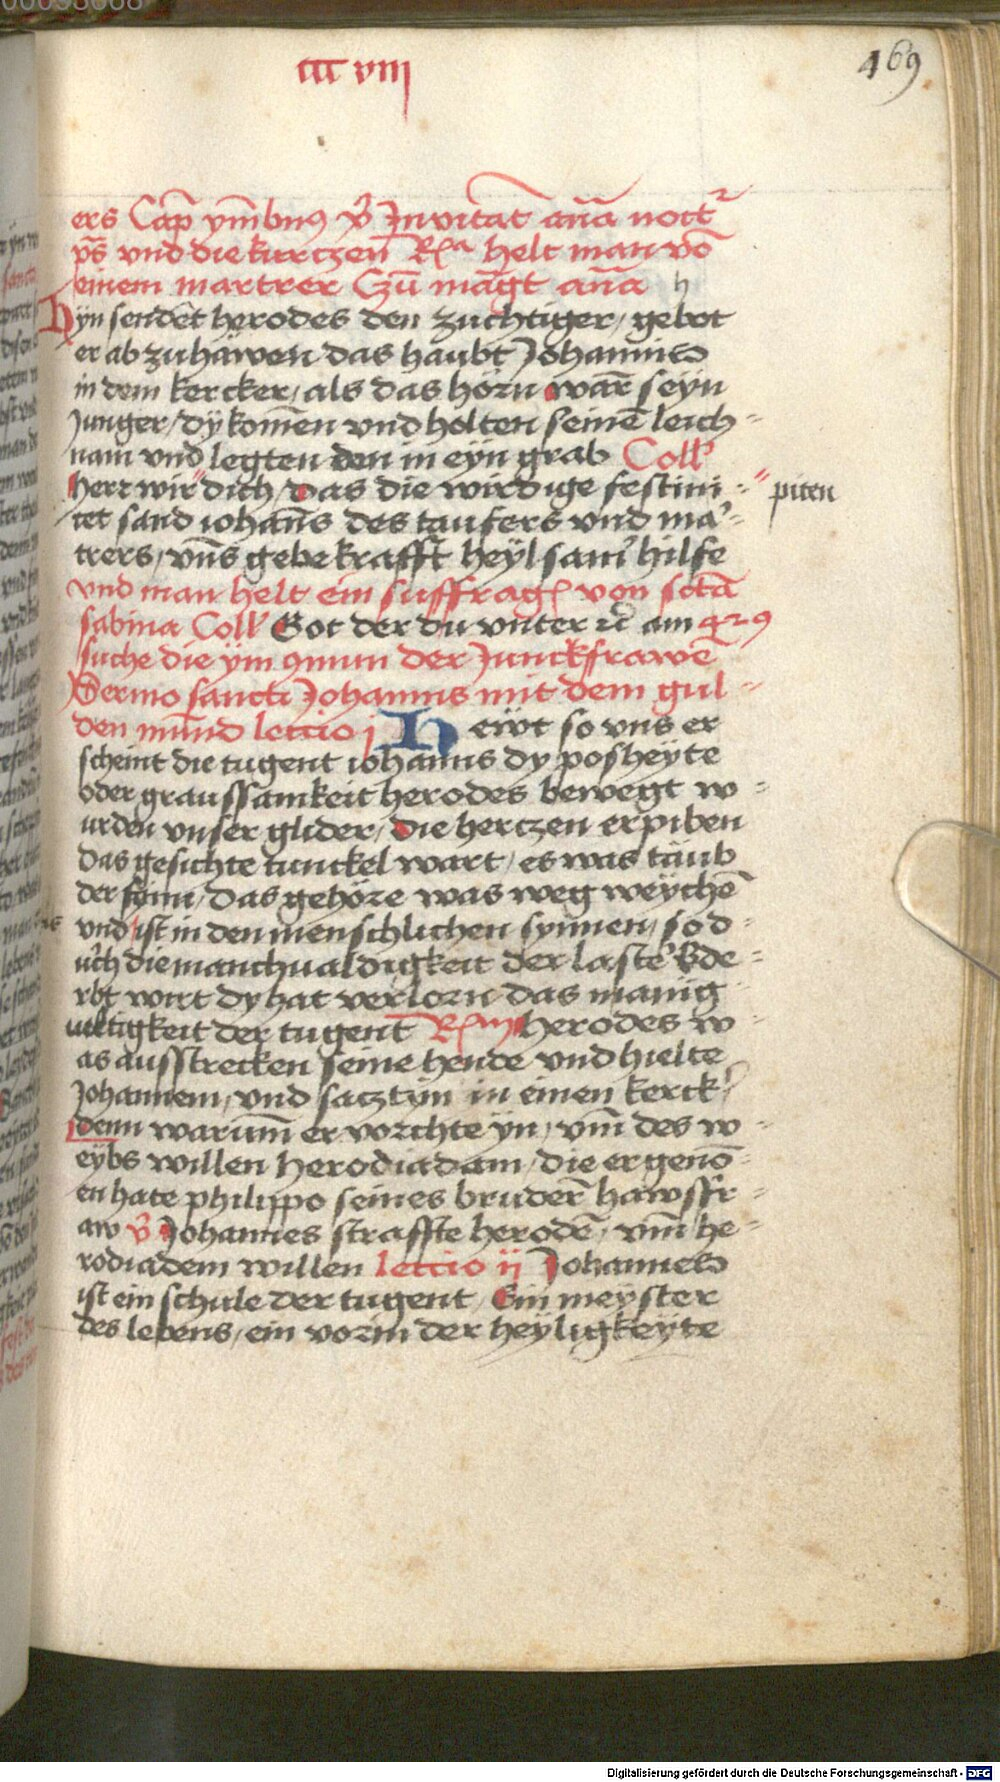 ccc viij
469
ers Cap̄ ym̄bnꝰ v̄ Invitat̄ an̄a noct̉
ps̄ vnd die kurczen̄ Rᵃ helt man vō
einem martrer Czū mag̅t an̄a h
Hyn sendēt herodes den zuchtiger / gebot
er ab zu häwen das haubt Johannis
in dem kercker / als das hörn war̄ seyn
Junger / dy kom̄en vnd holten seinē leich
nam vnd legten den in eyn grab Coll̉
Herr wir dich / das die wirdige festiui
piten
tet sand iohan̄s des taufers vnd ma̛
trers / vn̄s gebe krafft heylsam̉ hilfe
vnd man helt ein suffrag̉ von sctā
sabina Coll̉ Got der du vnter ꝛc̄ am 429
suche die ym 9mun der Junckfrawē
Sermo sancti Johannis mit dem gul
den mund leccio j Hewt so vns er
scheint die tugent iohanns dy posheyte
oder graussamkeit herodes bewegt w
urden vnser glider / die herczen erpiben
das gesichte tunckel wart / es was taub
der synn / das gehöre was weg weychē
vnd ist in den menschlichen synnen / so d
urch die manchualdigkeit der laste̛ v̛de
rbt wirt dy hat verlorn das manig
ueltigkeit der tugent R̉m̄ herodes w
as ausstrecken seine hende vnd hielte
Johannem / vnd saczt yn in einen kerck̛
Denn warum̄ er vorchte yn / vm̄ des w
eybs willen herodiadam / die er genō
en hate philippo seines bruder̄ hawsfr
aw v̄ Johannes straffte herodē / vm̄ he
rodiadem willen leccio ij Johannes
ist ein schule der tugent / Ein meyster
des lebens / ein vorm der heyligkeyte
Digitalisierung gefördert durch die Deutsche Forschungsgemeinschaft - DFG